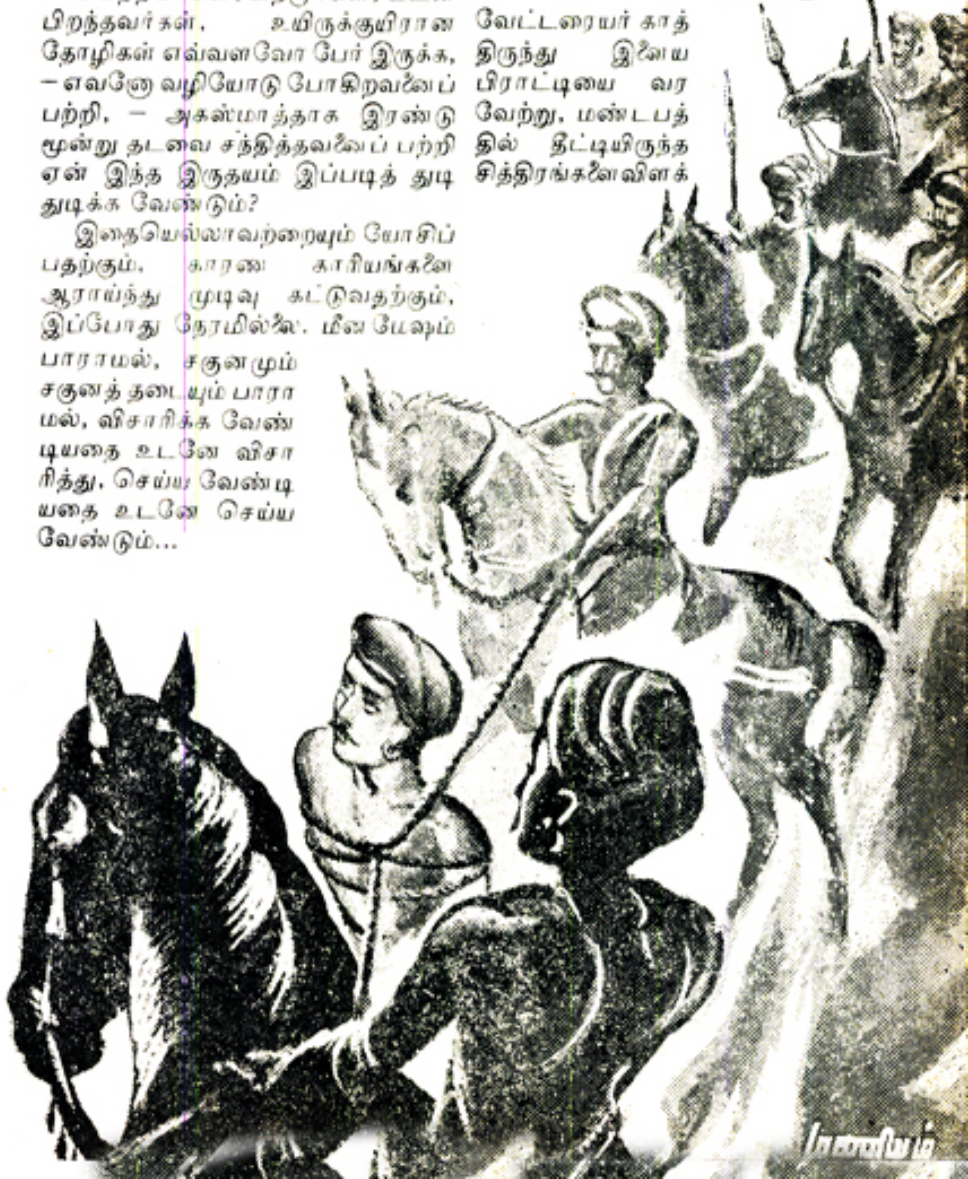 பிறந்தவர்கள், உயிருக்குயிரான
தோழிகள் எவ்வளவோ பேர் இருக்க,
—எவனோ வழியோடு போகிறவனைப்
பற்றி, — அகஸ்மாத்தாக இரண்டு
மூன்று தடவை சந்தித்தவனைப் பற்றி
ஏன் இந்த இருதயம் இப்படித் துடி
துடிக்க வேண்டும்?
இதையெல்லாவற்றையும் யோசிப்
பதற்கும், காரண காரியங்களை
ஆராய்ந்து முடிவு கட்டுவதற்கும்,
இப்போது நேரமில்லை. மீன மேஷம்
பாராமல், சகுனமும்
சகுனத் தடையும் பாரா
மல், விசாரிக்க வேண்
டியதை உடனே விசா
ரித்து, செய்ய வேண்டி
யதை உடனே செய்ய
வேண்டும்...
வேட்டரையர் காத்
திருந்து இளைய
பிராட்டியை வர
வேற்று, மண்டபத்
தில் தீட்டியிருந்த
சித்திரங்களைவிளக்
மணியம்